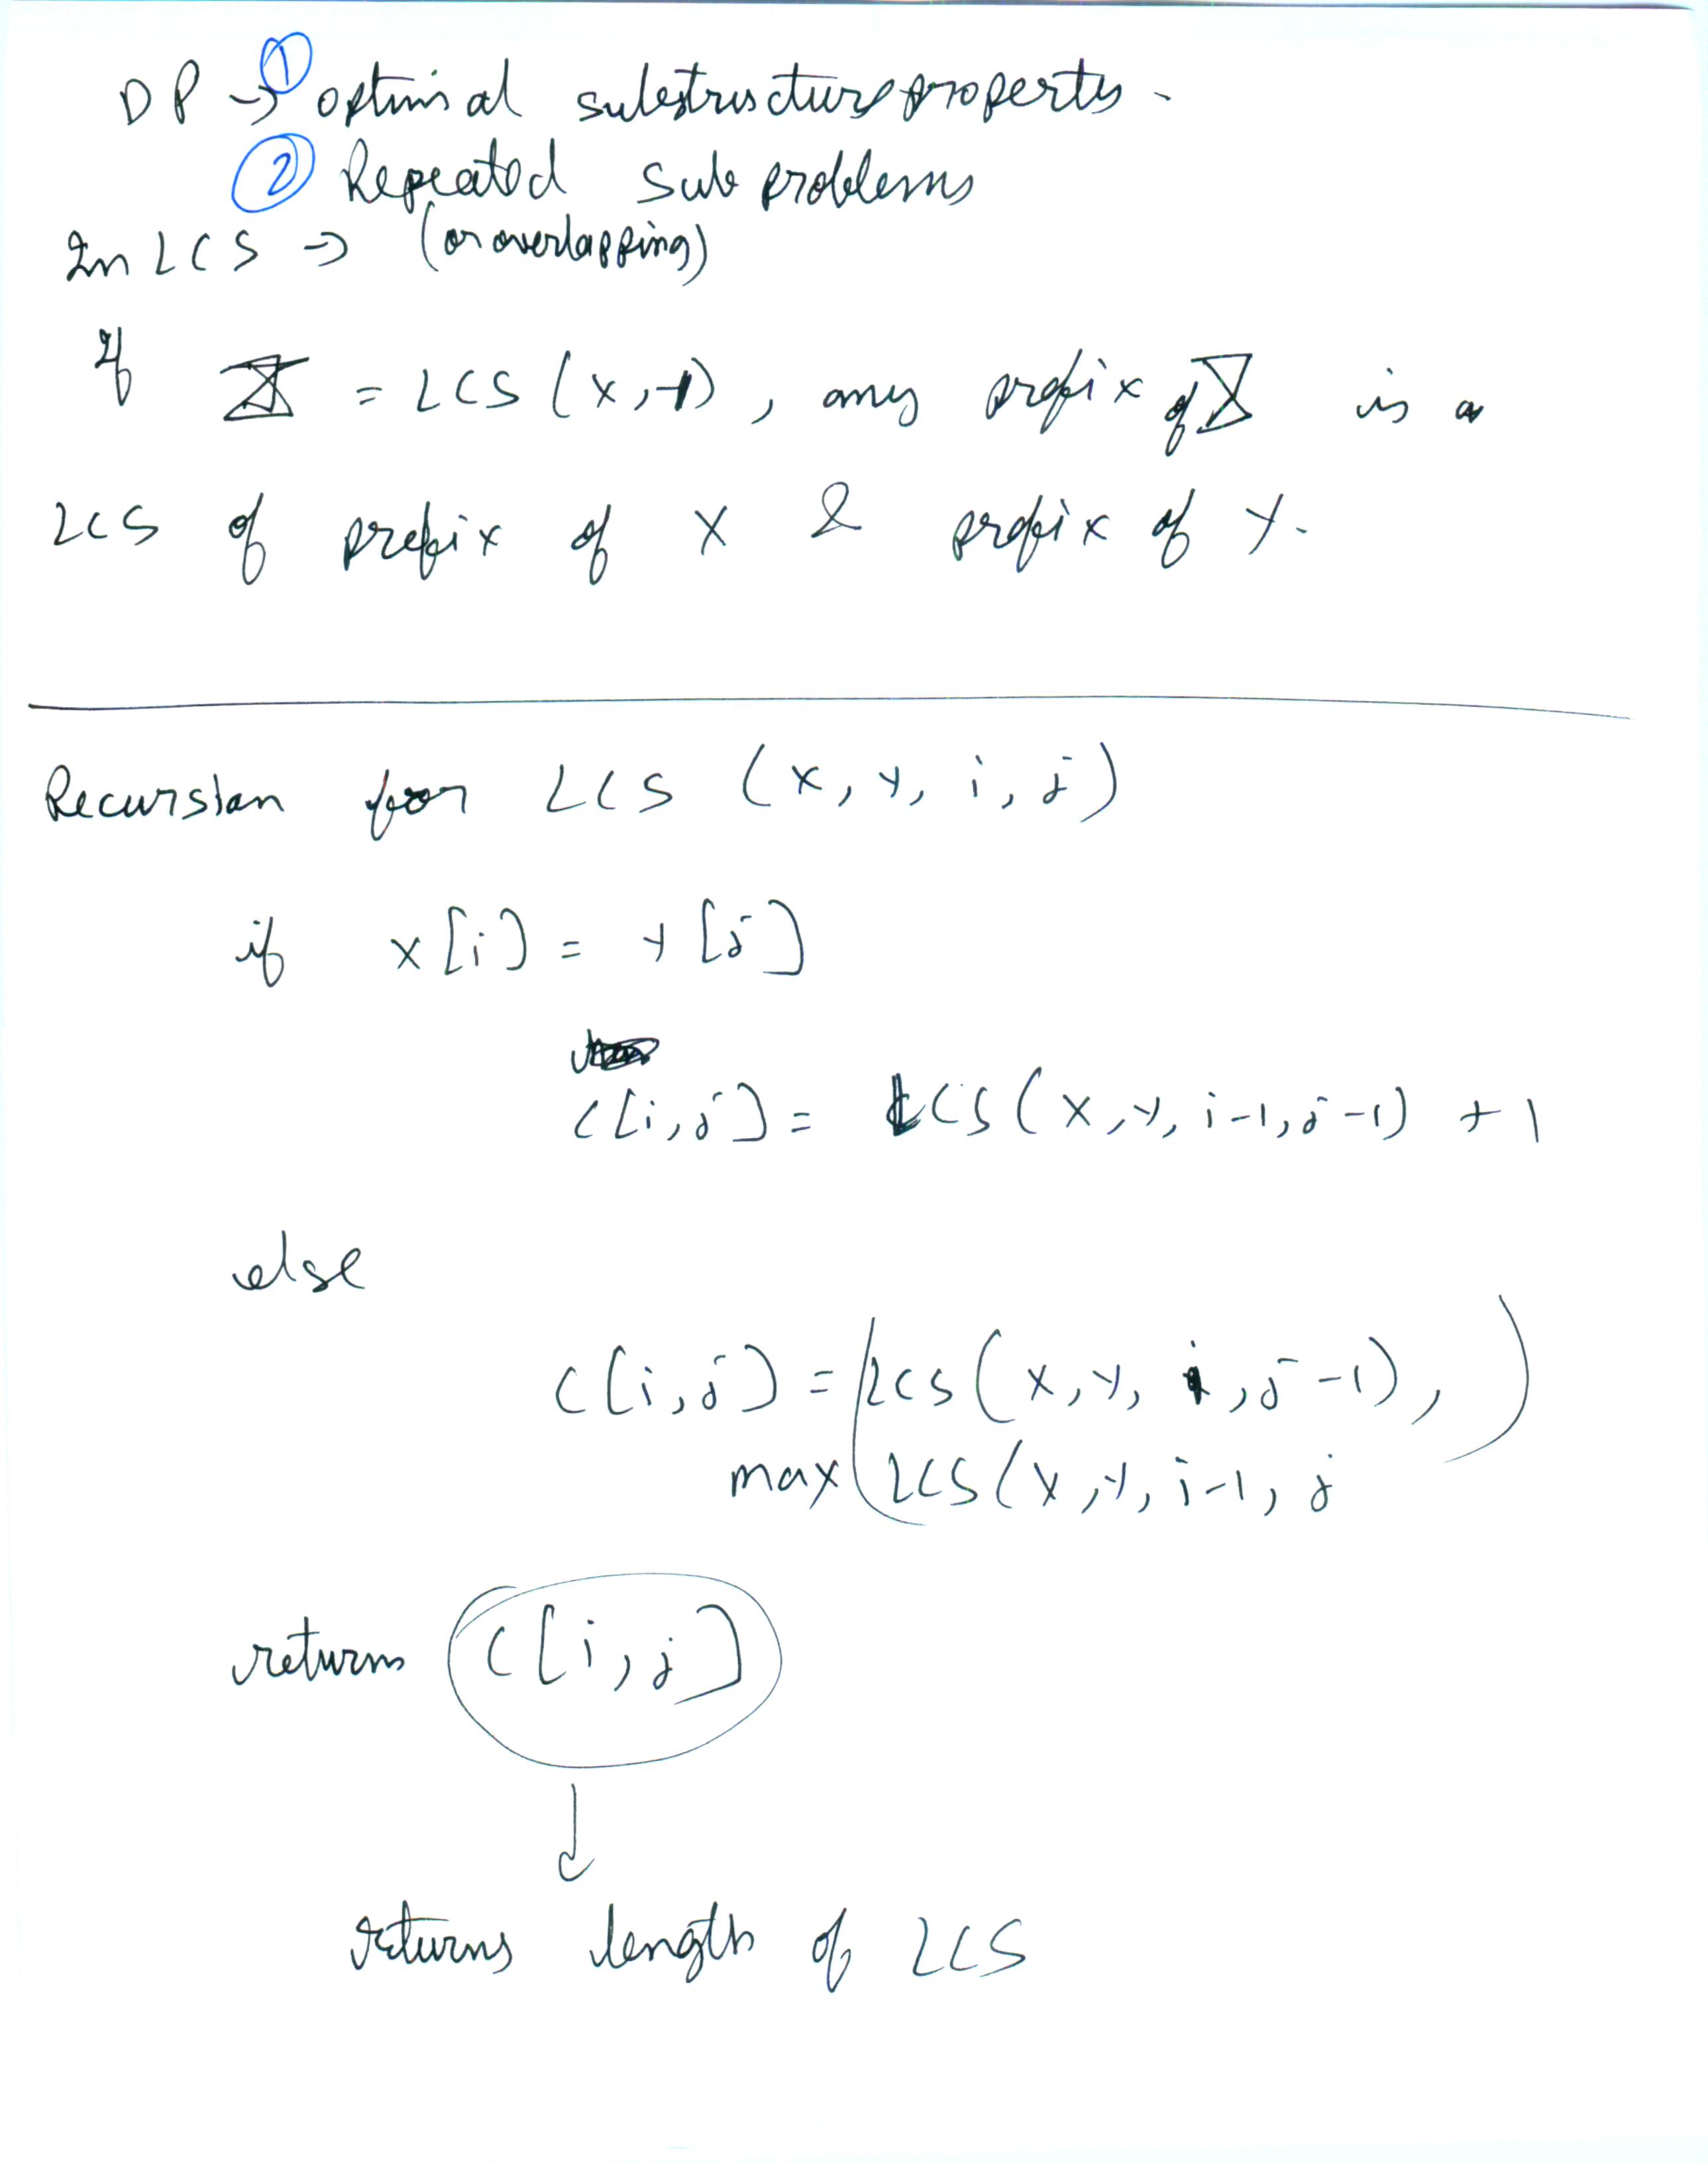 DP → ① optimal substructure property.
② Repeated sub problems
In LCS → (or overlapping)
If Z = LCS (x, y), any prefix of Z is a
LCS of prefix of X & prefix of Y.
Recursion for LCS (x, y, i, j)
if x[i] = y[j]
c[i,j] = LCS(x, y, i-1, j-1) + 1
else
c[i,j] = (LCS(x, y, i, j-1), )
max (LCS(x, y, i-1, j
return c[i,j]
↓
returns length of LCS